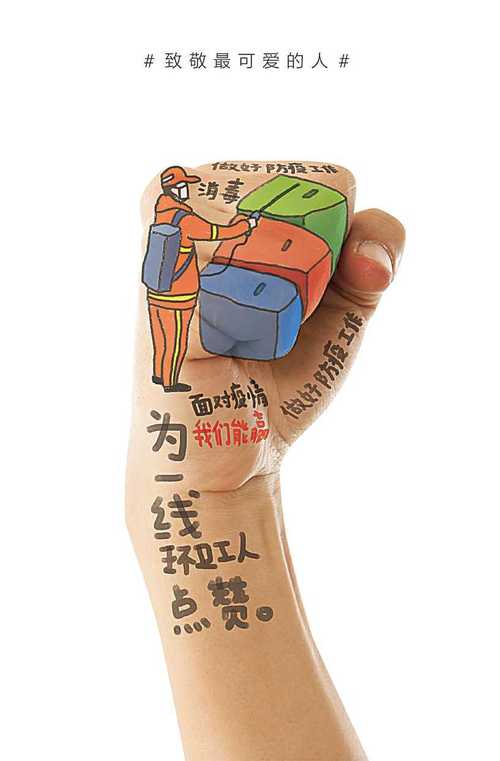 #致敬最可爱的人#
做好防疫工作
消毒
做好防疫工作
面对疫情
我们能赢
为
一
线
环卫工人
点赞。